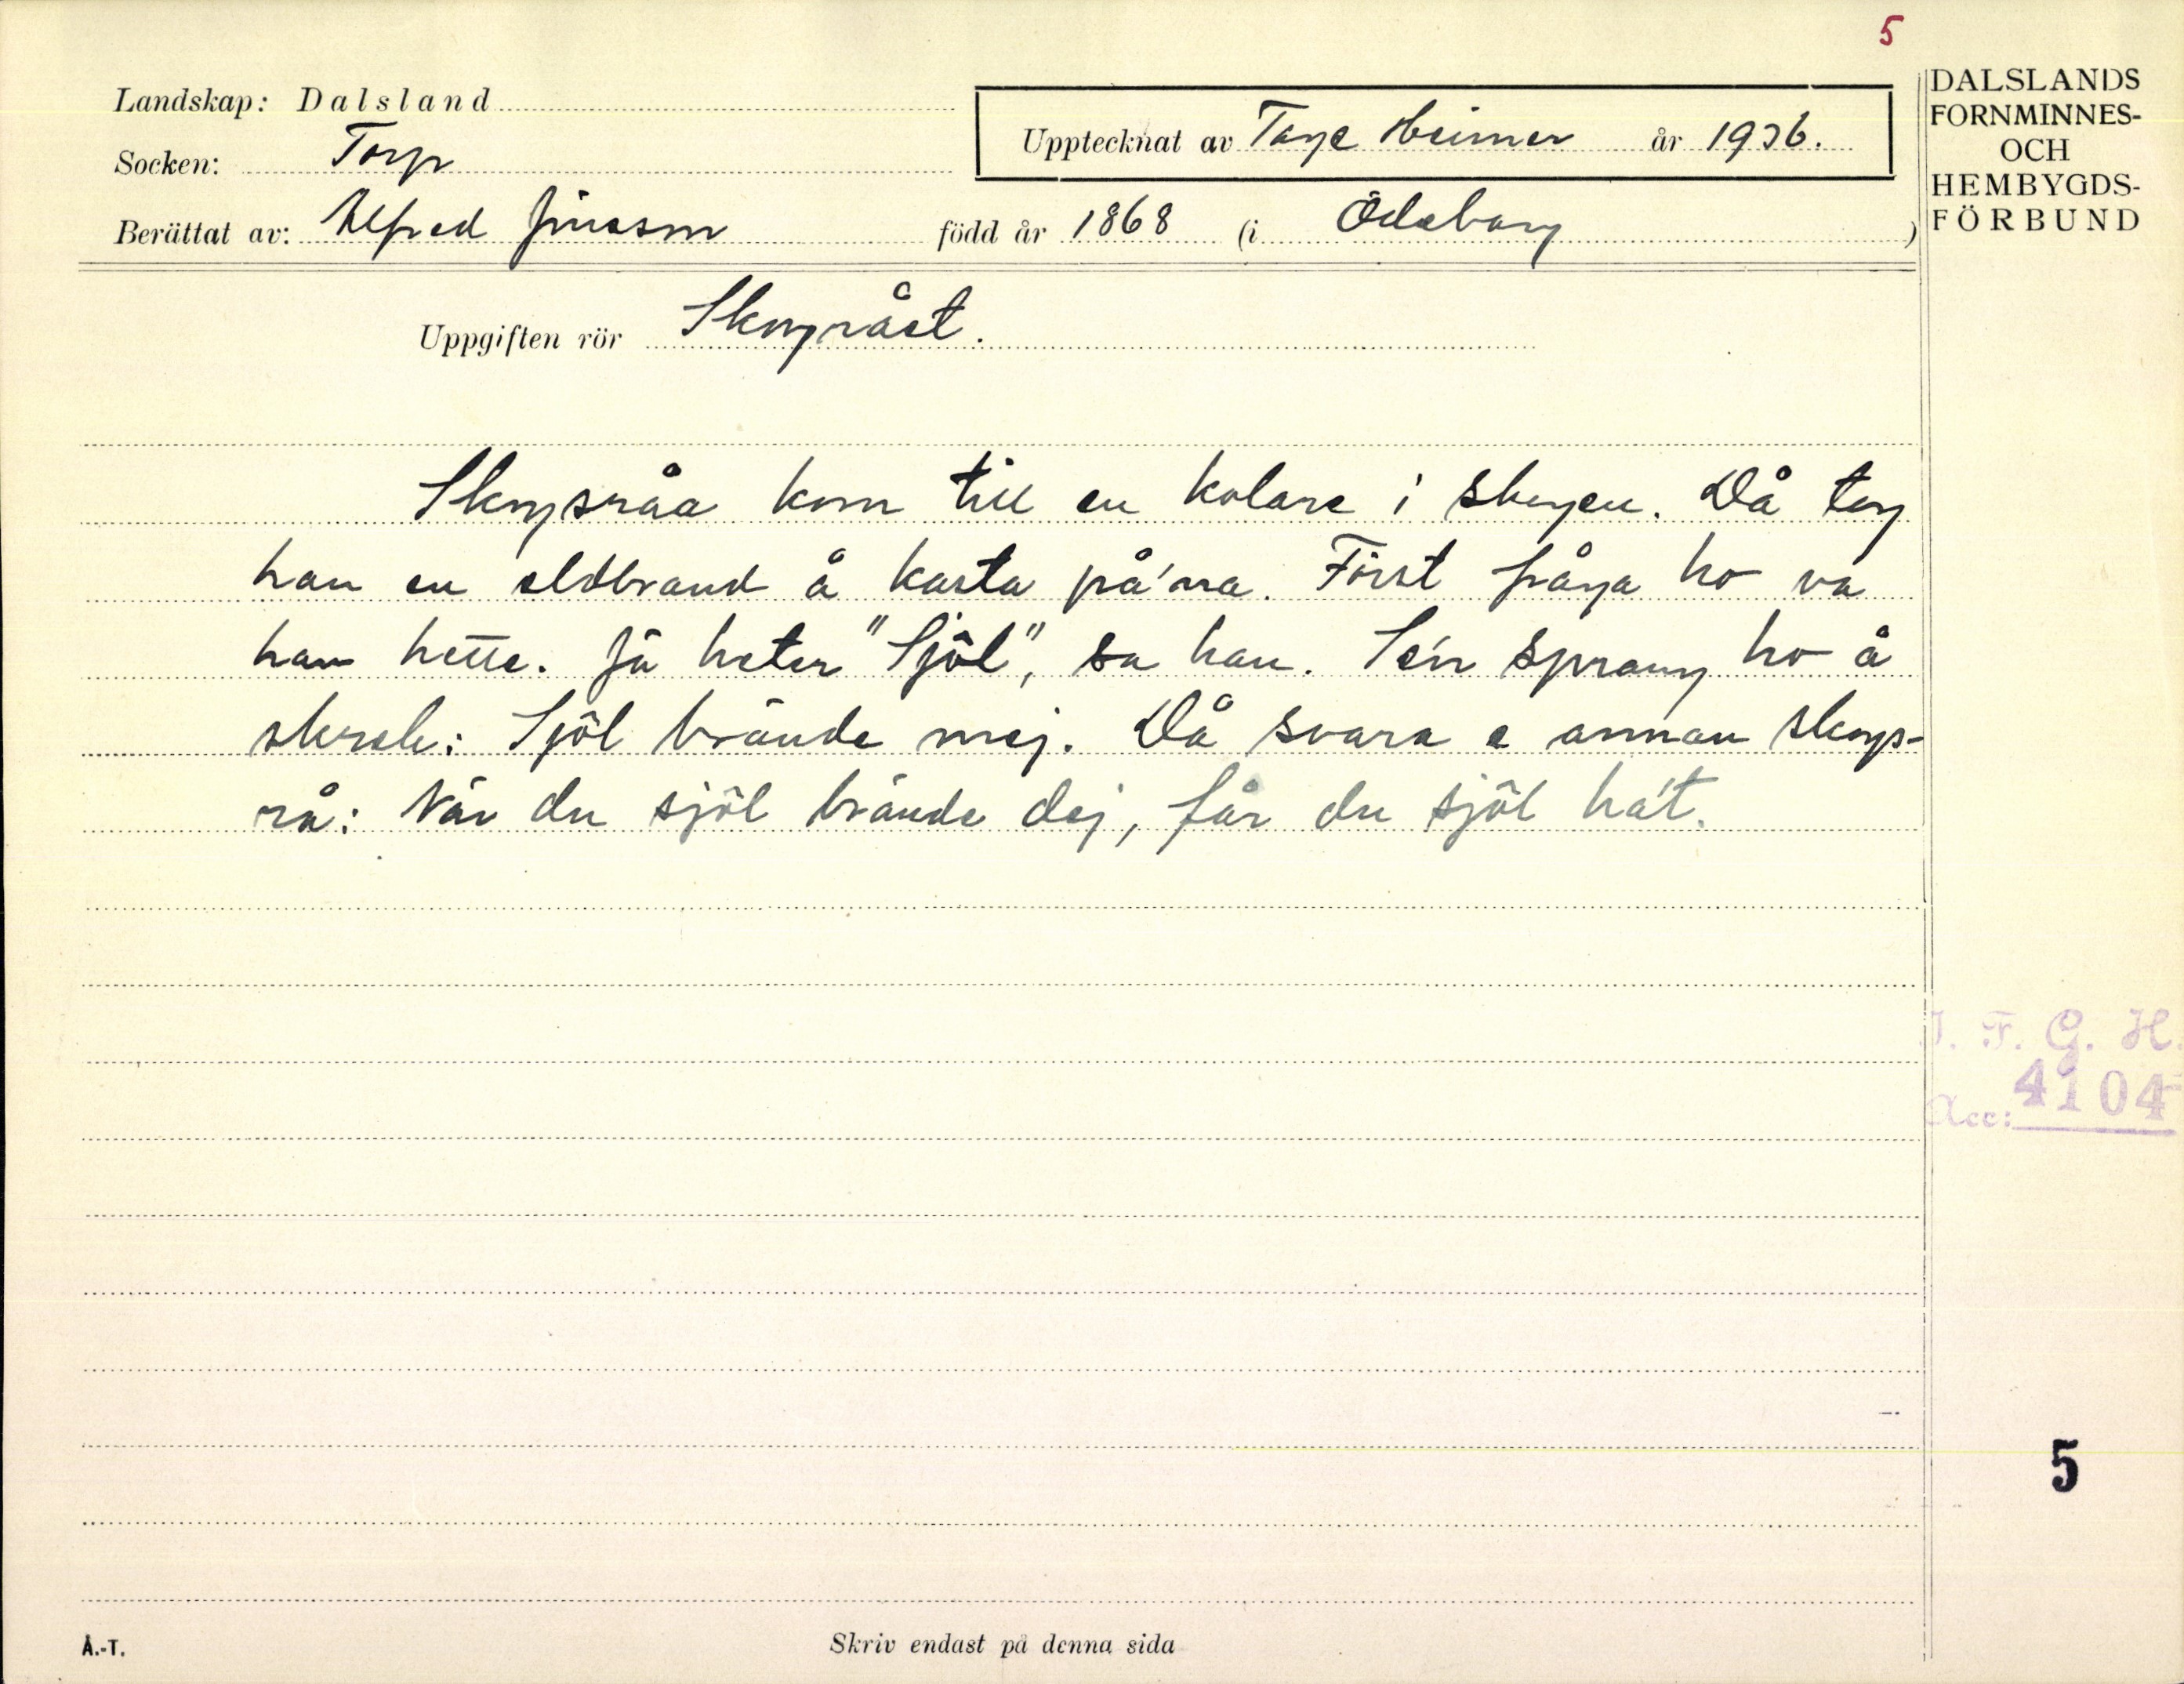 5
Landskap: Dalsland
Socken: Torp
Upptecknat av Tage Heimer år 1936.
Berättat av: Alfred Jonsson född år 1868 (i Ödeborg)
DALSLANDS
FORNMINNES-
OCH
HEMBYGDS-
FÖRBUND
Uppgiften rör Skogrået.
Skogsråa kom till en kolare i skogen. Då tog
han en eldbrand å kasta på'na. Först fråga ho va
han hette. Jä heter "Sjöl", sa han. Se'n sprang ho å
skrek: Sjöl brände mej. Då svara e annan skogs-
rå: När du sjöl brände dej, får du sjöl ha't.
I. F. G. H.
Acc: 4104
5
Å.-T.
Skriv endast på denna sida